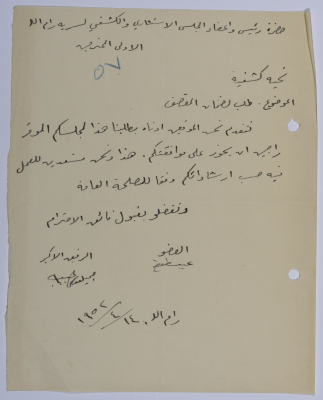 حضرة رئيس واعضاء المجلس الاستشاري والكشفي لسرية رام الله
الاولى المحترمين
٥٧
تحية كشفية
الموضوع: طلب لضمان المقصف
نتقدم نحن الموقعين ادناه بطلبنا هذا لمجلسكم الموقر
راجين ان يحوز على موافقتكم. هذا ونحن مستعدين للعمل
فيه حسب ارشاداتكم وفقا للمصلحة العامة
وتفضلو بقبول فائق الاحترام
العضو الرفيق الاكبر
رام الله ١٤/٤/١٩٥٢